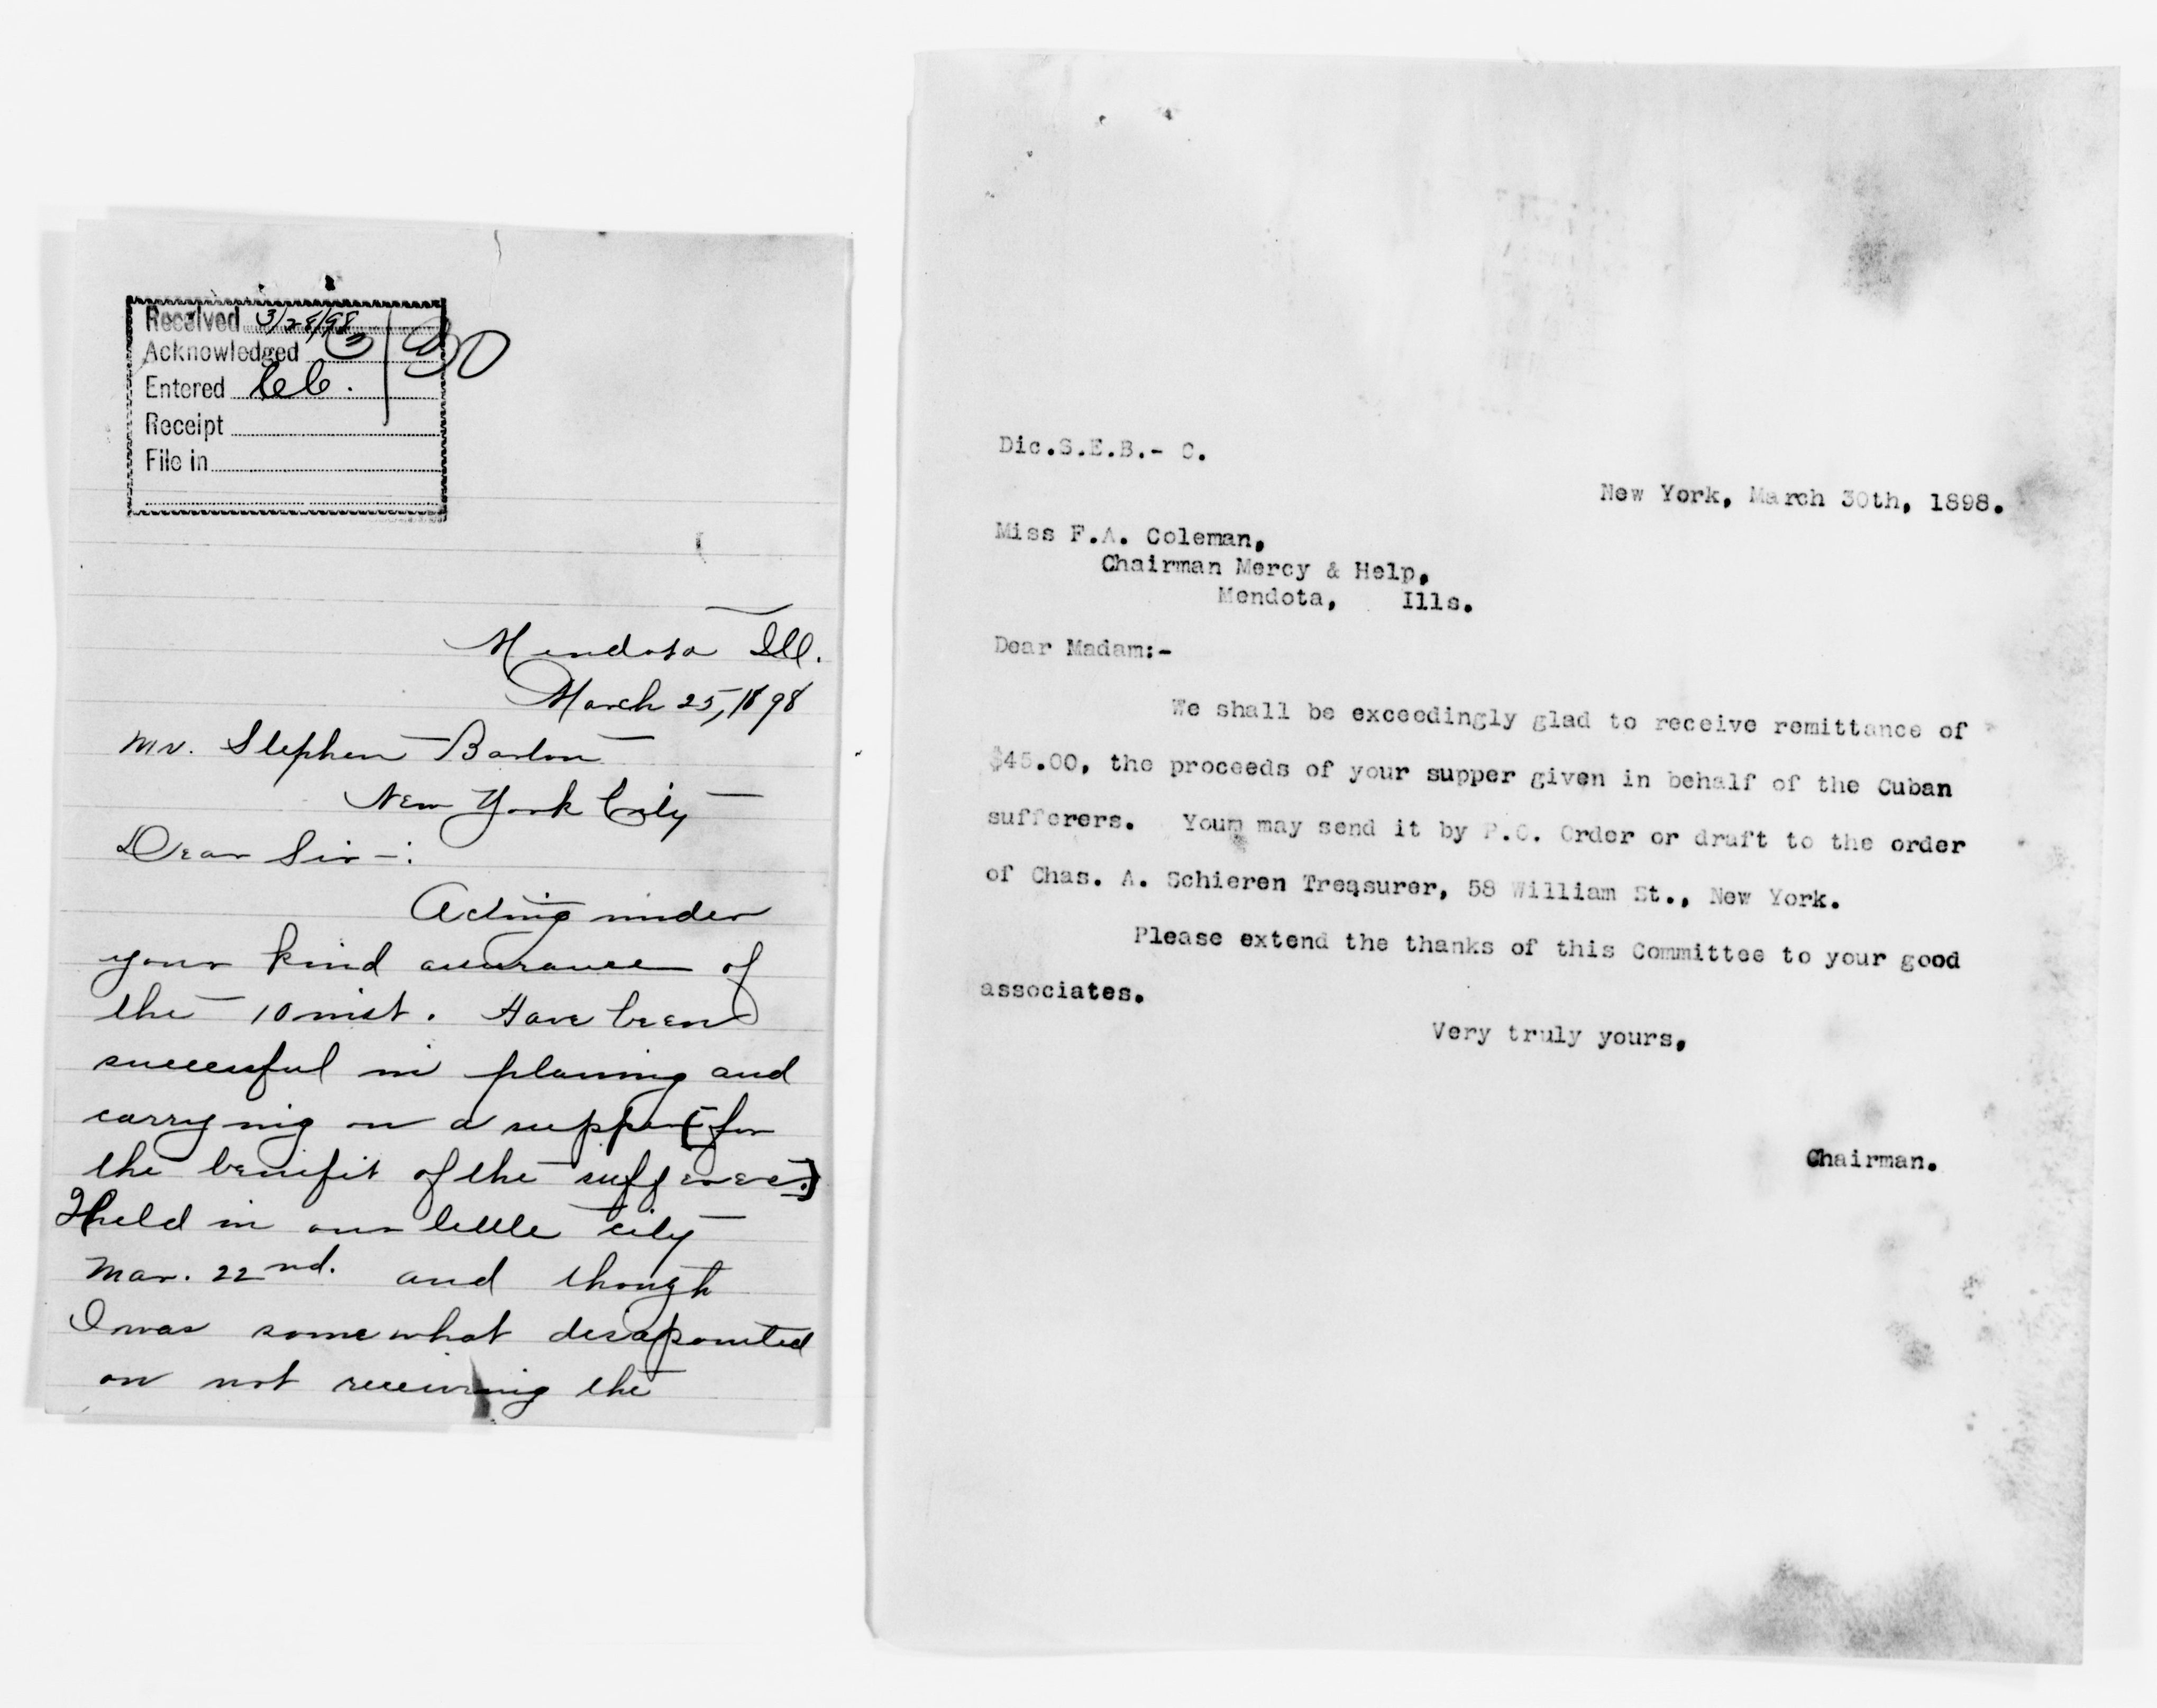 Received 3/28/98
Acknowledged 3/30
Entered
Receipt
File in
Mendota Ill.
March 25, 1898
Mr. Stephen Barton
New York City
Dear Sir-:
Acting under
your kind assurance of
the 10 inst. Have been
successful in planing and
carrying on a supper [for
the benifit of the sufferers.]
held in our little city
Mar. 22nd. and though
I was somewhat disapointed
on not receiving the
Dic.S.E.B.- C.
New York, March 30th, 1898.
Miss F.A. Coleman,
Chairman Mercy & Help,
Mendota, Ills.
Dear Madam:-
We shall be exceedingly glad to receive remittance of
$45.00, the proceeds of your supper given in behalf of the Cuban
sufferers. Youm may send it by P.O. Order or draft to the order
of Chas. A. Schieren Treasurer, 58 William St., New York.
Please extend the thanks of this Committee to your good
associates.
Very truly yours,
Chairman.